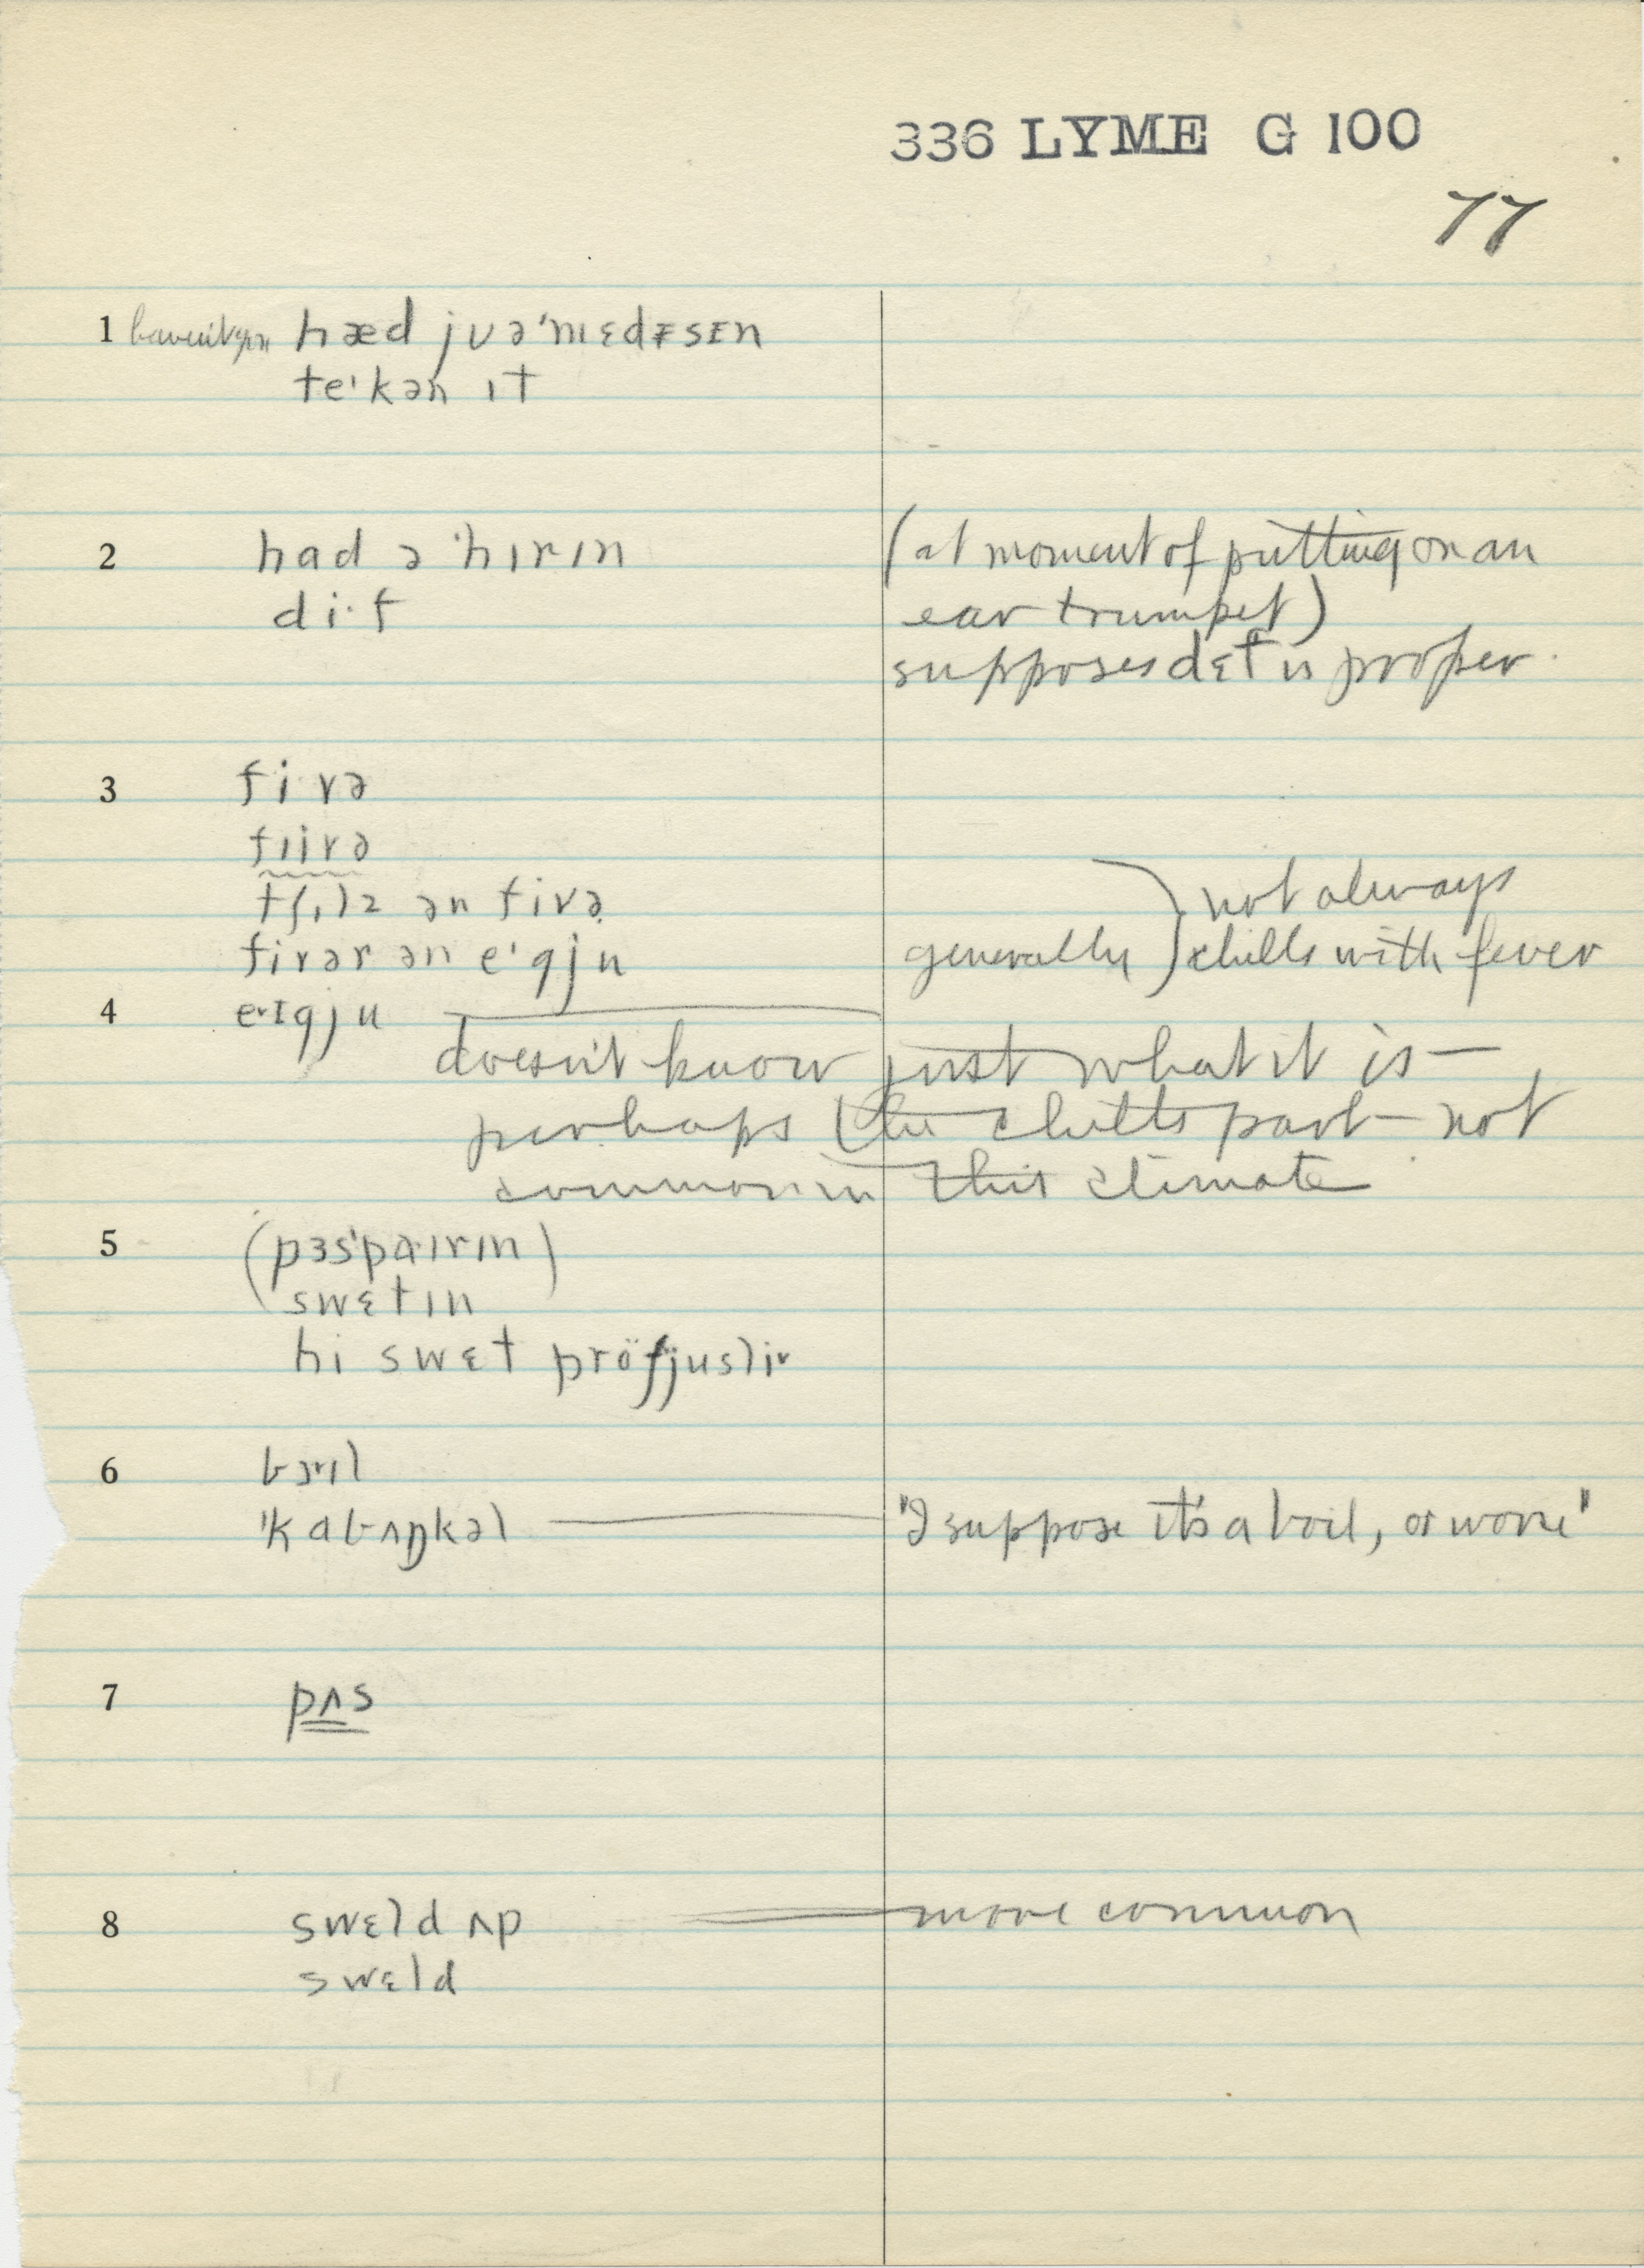 336 LYME G 100
77
1 haven't you hæd jʊə'mɪɛdᵻsᴇn
te'kən ɪt
2 had ə 'hɪrɪn (at moment of putting on an
di·f ear trumpet)
supposes dɛf is proper.
3 fivə
fɪivə
tʃɪlz ən fivə not always
fivər ən e'gju generally chills with fever
4 eˑɪgju
doesn't know just what it is —
perhaps the chills part — not
common in this climate
5 (pɜs'paɪrɪn)
swɛtɪn
hi swɛt pröfjusli
6 bɔˑɪl
'kabʌŋkəl "I suppose it's a boil, or worse"
7 pʌs
8 swɛld ʌp more common
swɛld